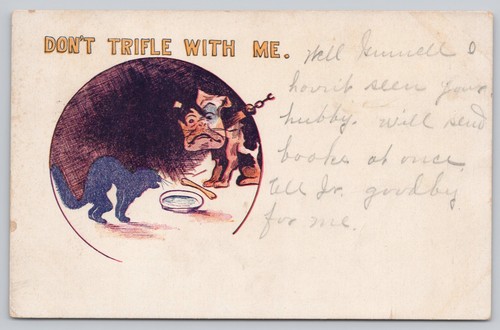 DON'T TRIFLE WITH ME.
Well
havn't seen your
hubby. Will send
books at once
Tell Jr. goodby
for me.